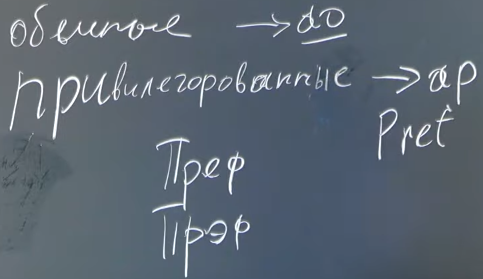 обычные → ао
привилегорованные → ар
Pref
Преф
Прэф